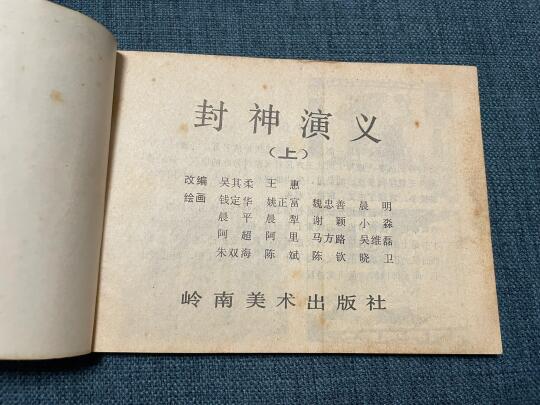 封神演义
（上）
改编 吴其柔 王惠
绘画 钱定华 姚正富 魏忠善 晨明
晨平 晨犁 谢颖 小淼
阿超 阿里 马方路 吴维磊
朱双海 陈斌 陈钦 晓卫
岭南美术出版社